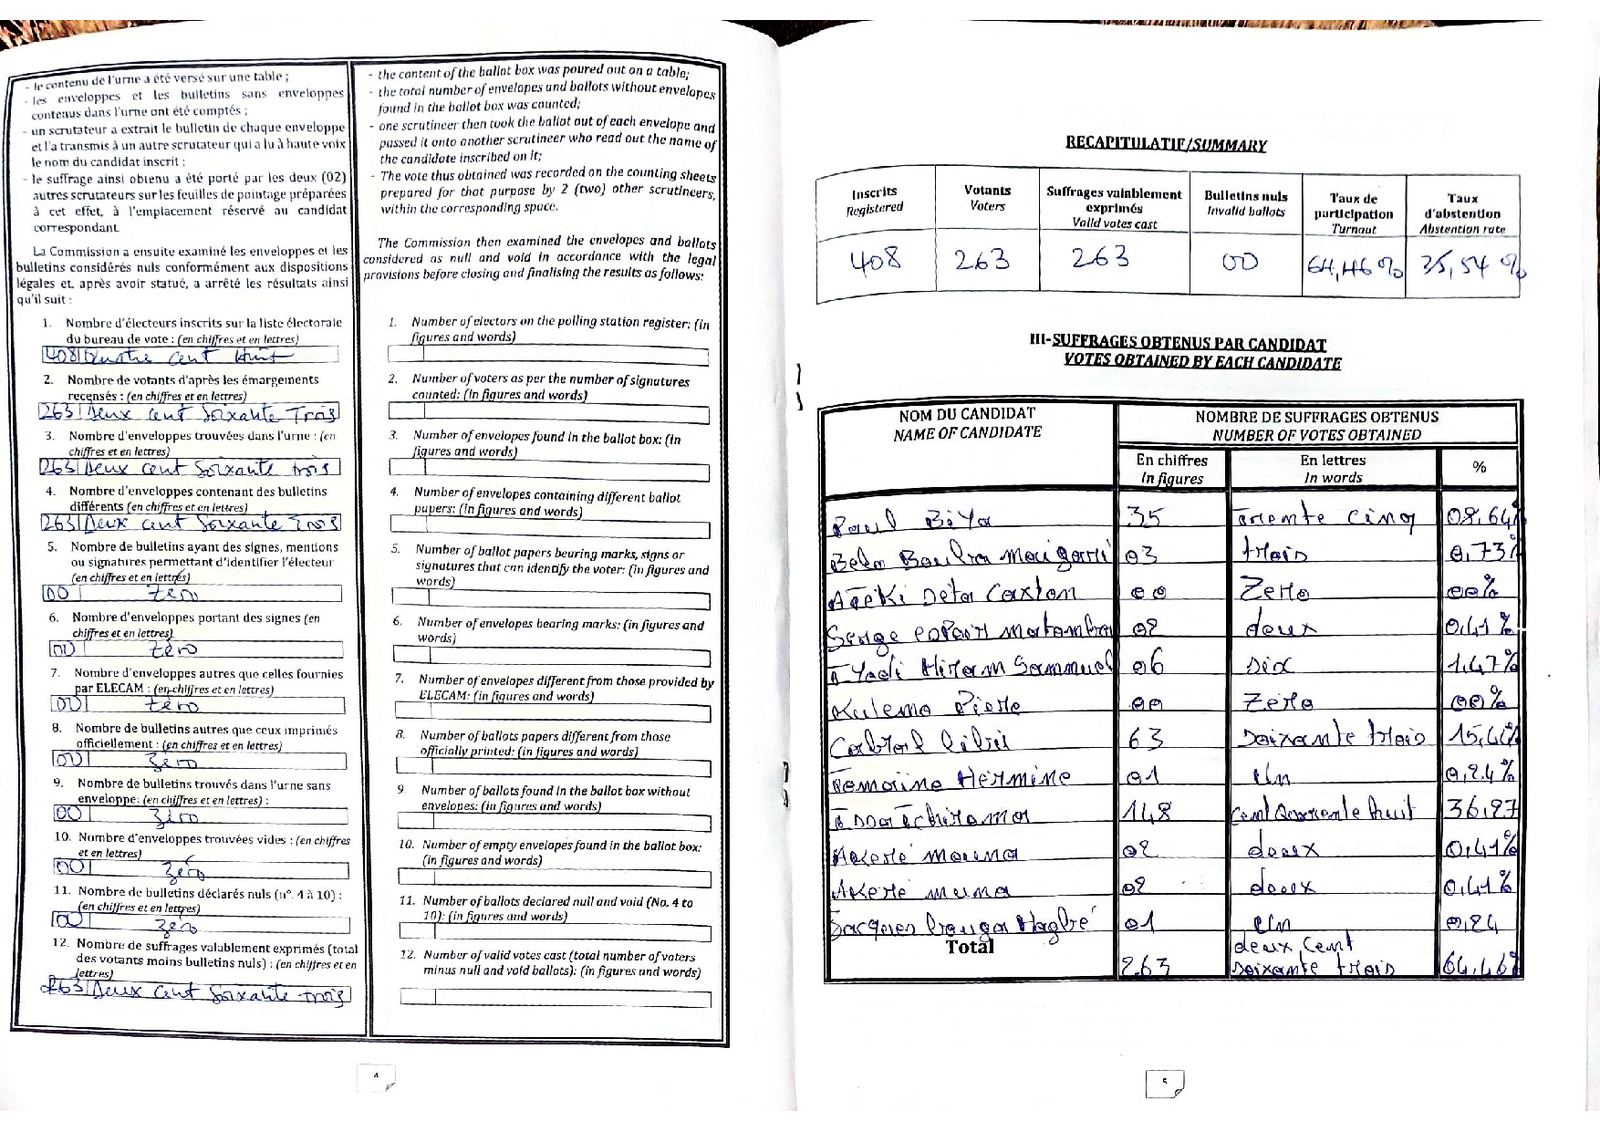 - le contenu de l'urne a été versé sur une table ;
- les enveloppes et les bulletins sans enveloppes
contenus dans l'urne ont été comptés ;
- un scrutateur a extrait le bulletin de chaque enveloppe
et l'a transmis à un autre scrutateur qui a lu à haute voix
le nom du candidat inscrit ;
- le suffrage ainsi obtenu a été porté par les deux (02)
autres scrutateurs sur les feuilles de pointage préparées
à cet effet, à l'emplacement réservé au candidat
correspondant.
La Commission a ensuite examiné les enveloppes et les
bulletins considérés nuls conformément aux dispositions
légales et, après avoir statué, a arrêté les résultats ainsi
qu'il suit :
1. Nombre d'électeurs inscrits sur la liste électorale
du bureau de vote : (en chiffres et en lettres)
408 Quatre cent Huit
2. Nombre de votants d'après les émargements
recensés : (en chiffres et en lettres)
263 Deux cent Soixante Trois
3. Nombre d'enveloppes trouvées dans l'urne : (en
chiffres et en lettres)
263 Deux cent Soixante trois
4. Nombre d'enveloppes contenant des bulletins
différents (en chiffres et en lettres)
263 Deux cent Soixante Trois
5. Nombre de bulletins ayant des signes, mentions
ou signatures permettant d'identifier l'électeur
(en chiffres et en lettres)
00 zéro
6. Nombre d'enveloppes portant des signes (en
chiffres et en lettres)
00 zéro
7. Nombre d'enveloppes autres que celles fournies
par ELECAM : (en chiffres et en lettres)
00 zéro
8. Nombre de bulletins autres que ceux imprimés
officiellement : (en chiffres et en lettres)
00 zéro
9. Nombre de bulletins trouvés dans l'urne sans
enveloppe: (en chiffres et en lettres) :
00 zéro
10. Nombre d'enveloppes trouvées vides : (en chiffres
et en lettres)
00 zéro
11. Nombre de bulletins déclarés nuls (n°. 4 à 10) :
(en chiffres et en lettres)
00 zéro
12. Nombre de suffrages valablement exprimés (total
des votants moins bulletins nuls) : (en chiffres et en
lettres)
263 Deux cent Soixante trois
- the content of the ballot box was poured out on a table;
- the total number of envelopes and ballots without envelopes
found in the ballot box was counted;
- one scrutineer then took the ballot out of each envelope and
passed it onto another scrutineer who read out the name of
the candidate inscribed on it;
- The vote thus obtained was recorded on the counting sheets
prepared for that purpose by 2 (two) other scrutineers,
within the corresponding space.
The Commission then examined the envelopes and ballots
considered as null and void in accordance with the legal
provisions before closing and finalising the results as follows:
1. Number of electors on the polling station register: (in
figures and words)
2. Number of voters as per the number of signatures
counted: (In figures and words)
3. Number of envelopes found in the ballot box: (In
figures and words)
4. Number of envelopes containing different ballot
papers: (in figures and words)
5. Number of ballot papers bearing marks, signs or
signatures that can identify the voter: (in figures and
words)
6. Number of envelopes bearing marks: (in figures and
words)
7. Number of envelopes different from those provided by
ELECAM: (in figures and words)
8. Number of ballots papers different from those
officially printed: (in figures and words)
9. Number of ballots found in the ballot box without
envelopes: (in figures and words)
10. Number of empty envelopes found in the ballot box:
(in figures and words)
11. Number of ballots declared null and void (No. 4 to
10): (in figures and words)
12. Number of valid votes cast (total number of voters
minus null and void ballots): (in figures and words)
4
RECAPITULATIF/SUMMARY
Inscrits Registered Votants Voters Suffrages valablement exprimés Valid votes cast Bulletins nuls Invalid ballots Taux de participation Turnout Taux d'abstention Abstention rate
408 263 263 00 64,46% 35,54%
III-SUFFRAGES OBTENUS PAR CANDIDAT
VOTES OBTAINED BY EACH CANDIDATE
NOM DU CANDIDAT NOMBRE DE SUFFRAGES OBTENUS
NAME OF CANDIDATE NUMBER OF VOTES OBTAINED
En chiffres En lettres %
In figures In words
Paul Biya 35 Trente Cinq 08,64%
Bello Bouba Maigari 03 trois 0,73%
Ateki Seta Caxton 00 Zero 00%
Serge Espoir Matomba 02 deux 0,41%
Iyodi Hiram Sammuel 06 Six 1,47%
Kulemo Pierre 00 Zero 00%
Cabral Libii 63 Soixante trois 15,44%
Tomaino Hermine 01 Un 0,24%
Issa Tchiroma 148 Cent Quarente huit 36,27
Akere Mouna 02 deux 0,41%
Akere muna 02 deux 0,41%
Jacques Bouga Hagbé 01 Un 0,24
Total 263 deux cent
Soixante trois 64,46%
5